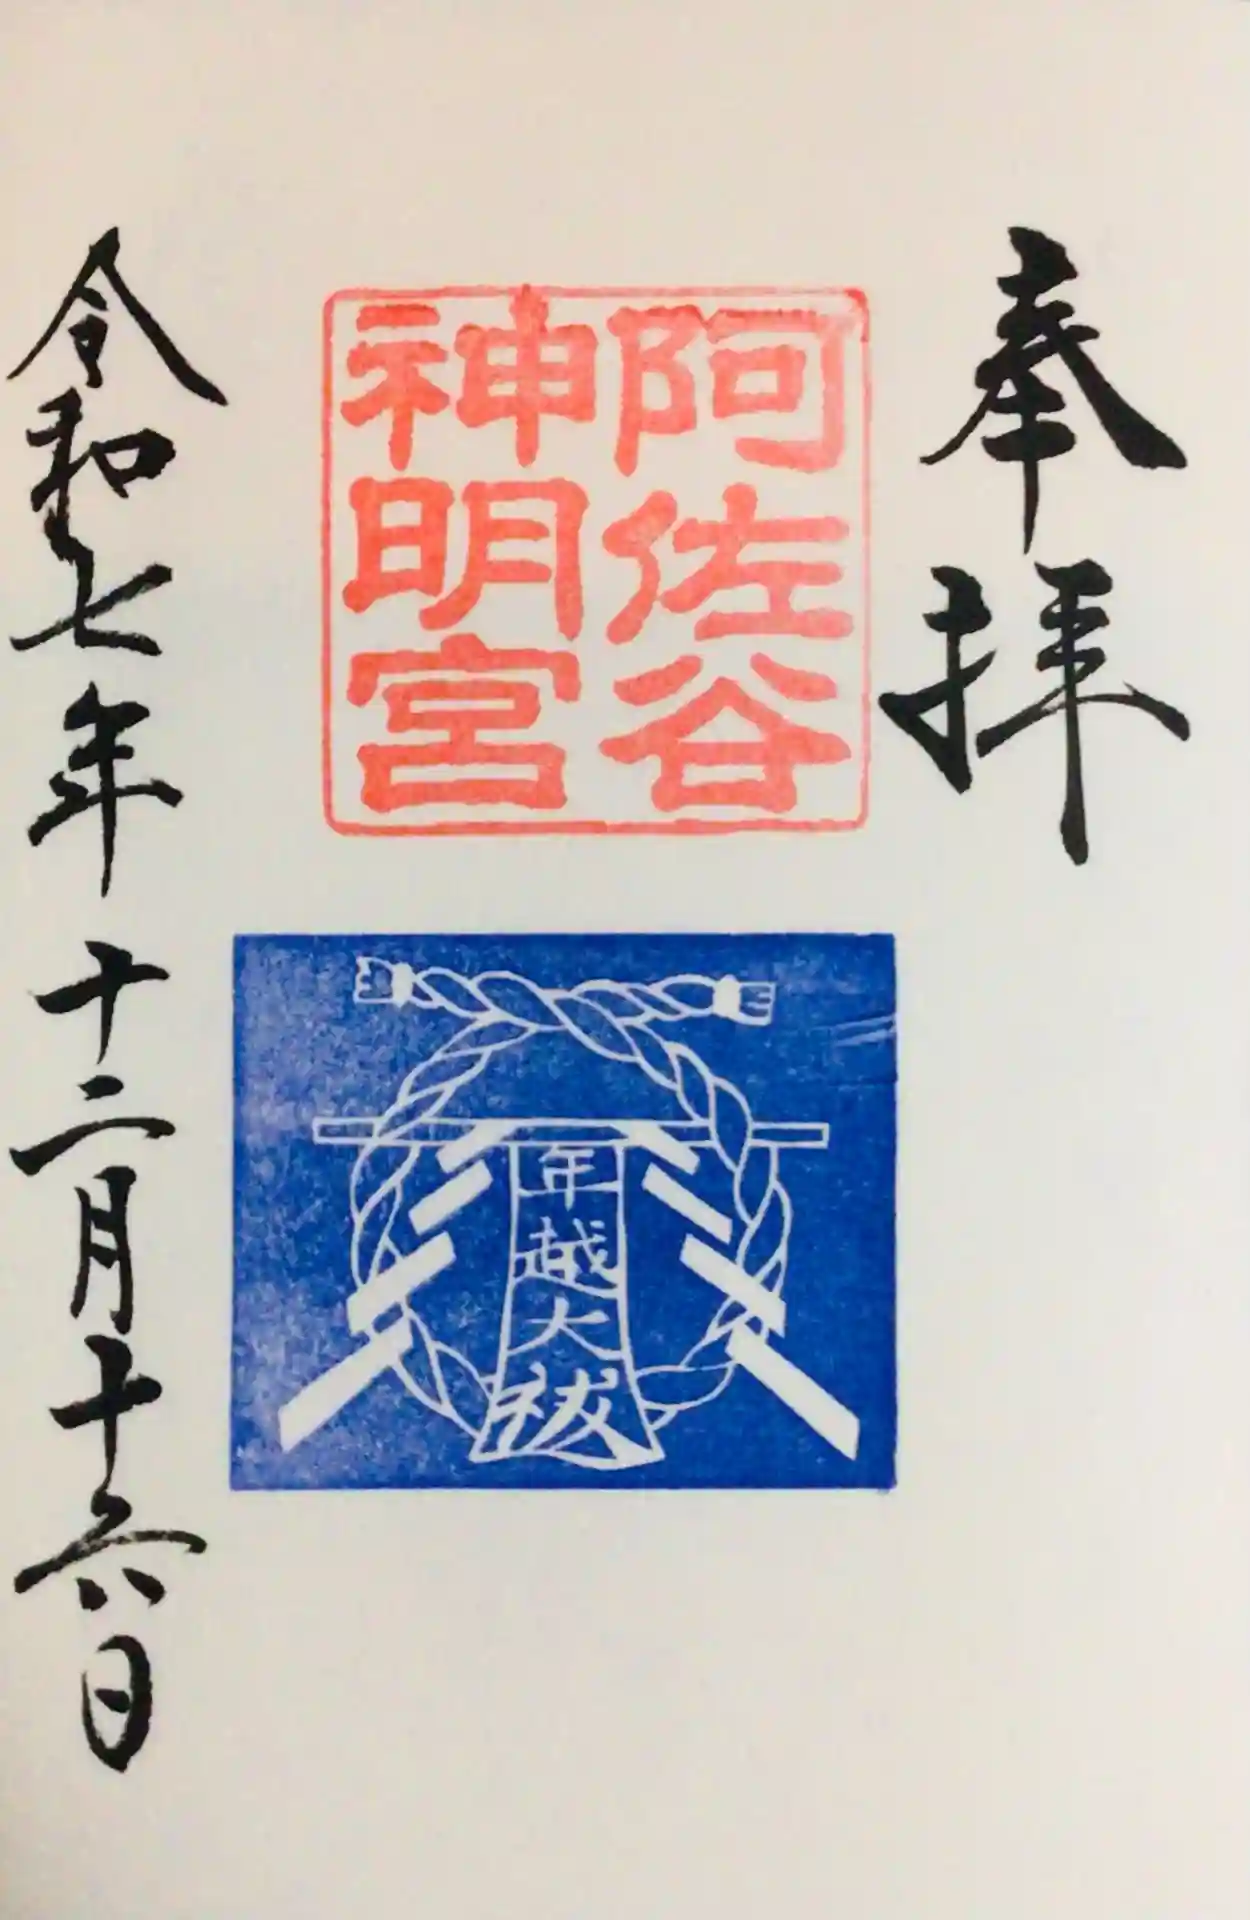 奉拝
阿佐谷
神明宮
年越大祓
令和七年十二月十六日